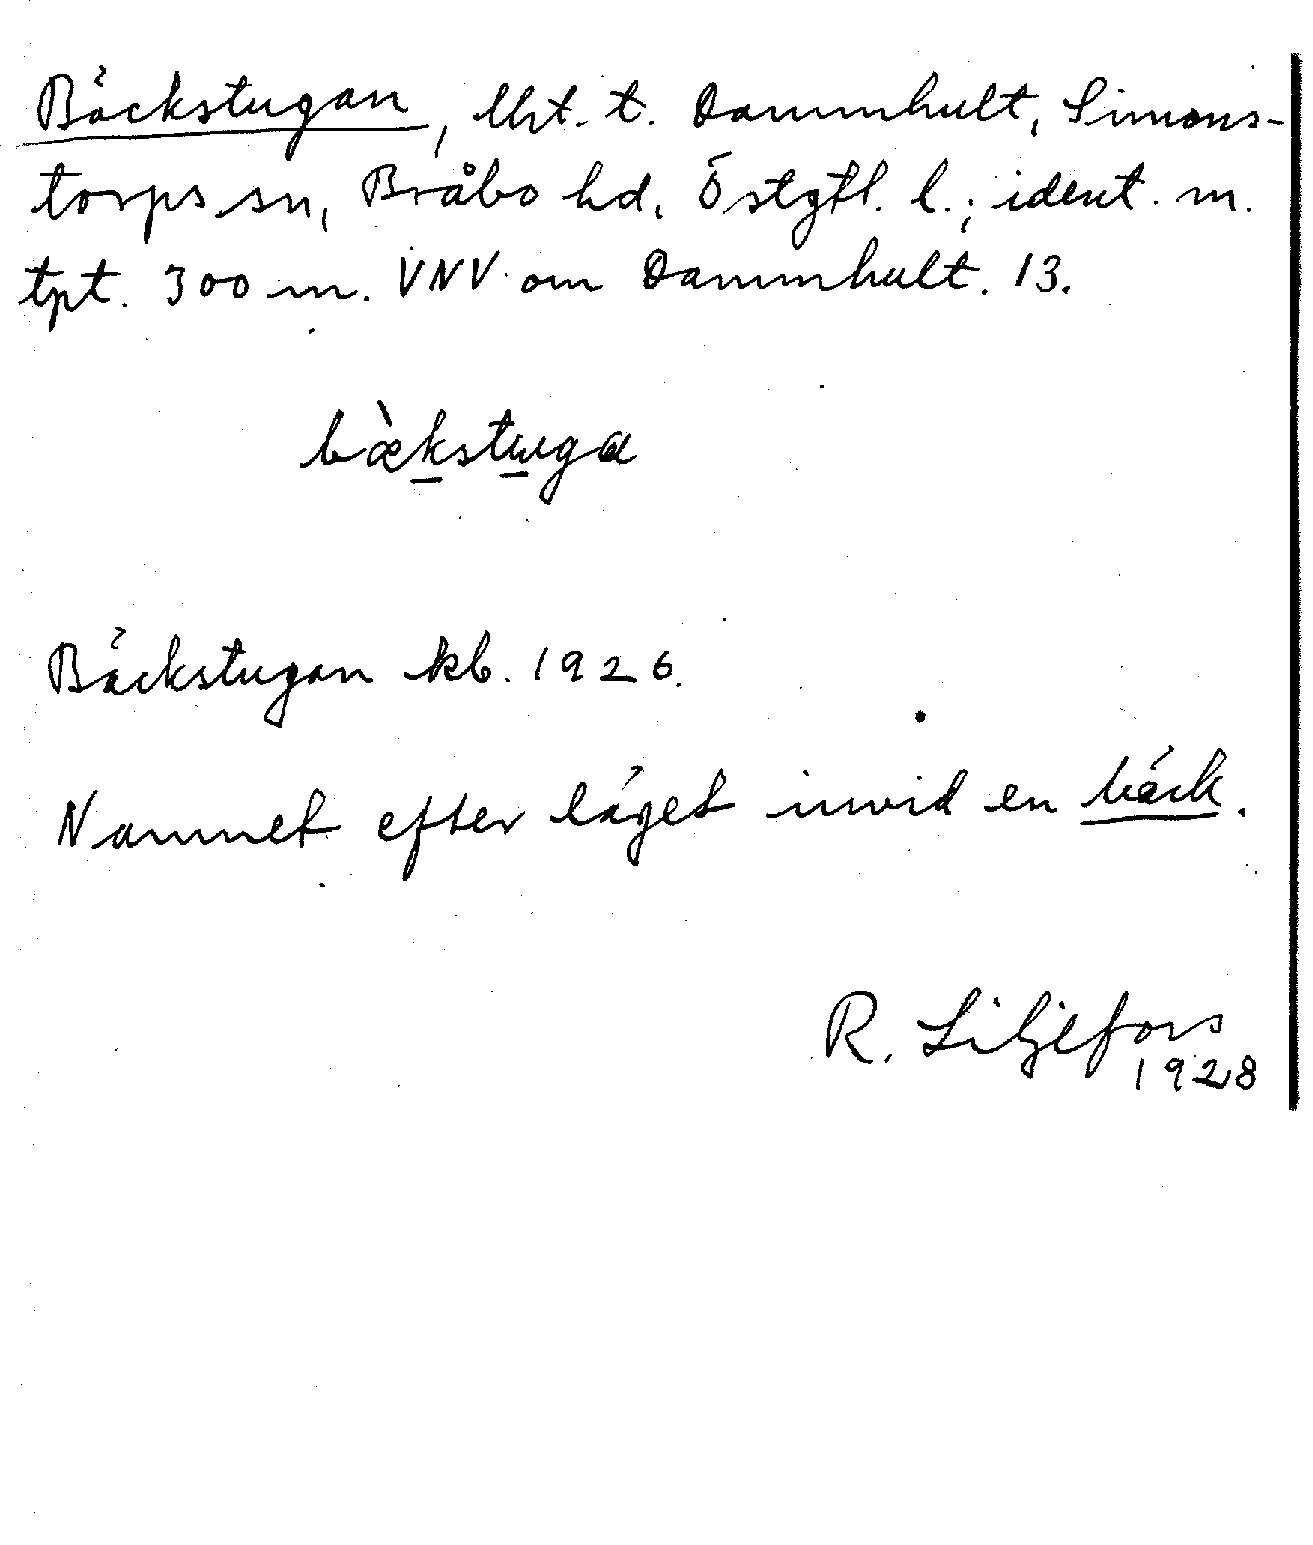 Bäckstugan, lht. t. Dammhult, Simons-
torps sn, Bråbo hd, Östgtl. l.; ident. m.
tpt. 300 m. VNV om Dammhult. 13.
bæ̀kstuga
Bäckstugan kb. 1926.
Namnet efter läget invid en bäck.
R. Liljefors
1928